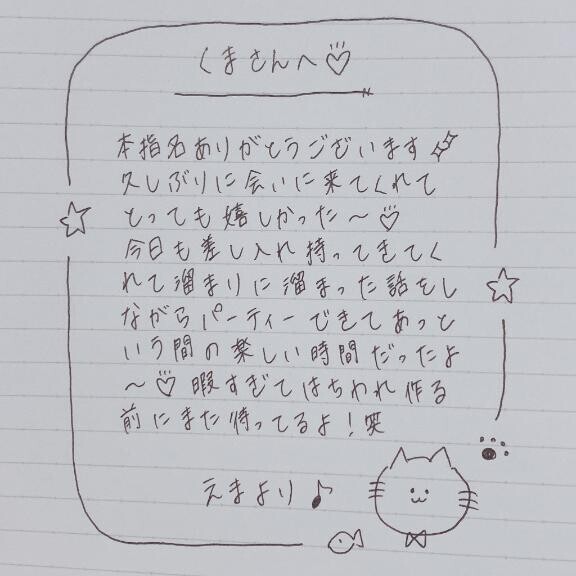 くまさんへ♡
本指名ありがとうございます
久しぶりに会いに来てくれて
とっても嬉しかった〜♡
今日も差し入れ持ってきてく
れて溜まりに溜まった話をし
ながらパーティーできてあっと
いう間の楽しい時間だったよ
〜♡暇すぎてはちわれ作る
前にまた待ってるよ！笑
えまより♪